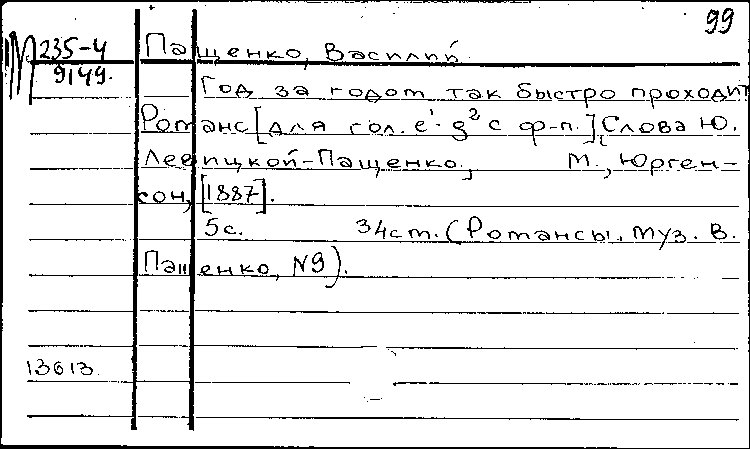 99
М 235-4 Пащенко, Василий.
9149.
Год за годом так быстро проходит
Романс [для гол. e¹-g² с ф-п.], Слова Ю.
Левицкой-Пащенко, М., Юрген-
сон, [1887].
5с. 34см. (Романсы. Муз. В.
Пащенко, №9).
13613.